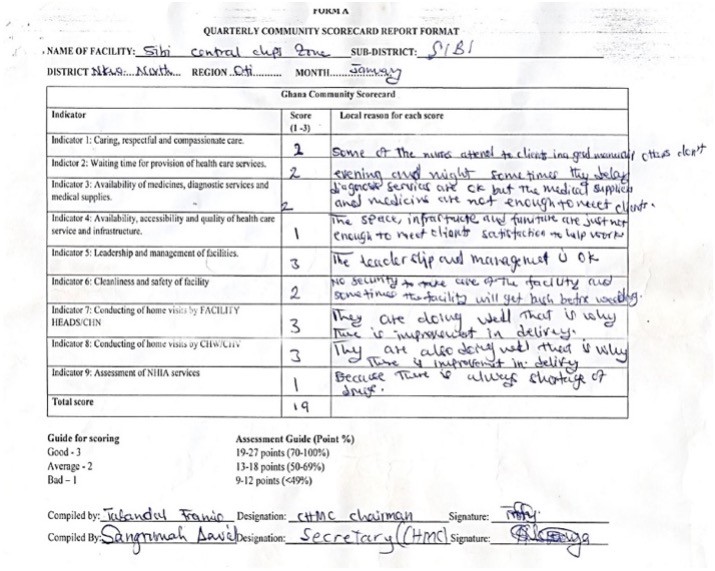 FORM A
QUARTERLY COMMUNITY SCORECARD REPORT FORMAT
NAME OF FACILITY: Sibi central chps Zone SUB-DISTRICT: SIBI
DISTRICT Nkwa North REGION Oti MONTH January
Ghana Community Scorecard
Indicator Score (1-3) Local reason for each score
Indicator 1: Caring, respectful and compassionate care. 2 Some of the nurses attend to clients in a good manner others don't
Indictor 2: Waiting time for provision of health care services. 2 evening and night sometimes they delay
Indicator 3: Availability of medicines, diagnostic services and medical supplies. 2 diagnosis services are ok but the medical supplies
and medicine are not enough to meet clients.
Indicator 4: Availability, accessibility and quality of health care service and infrastructure. 1 The space, infrastructe and funiture are just not
enough to meet clients satisfaction to help work
Indicator 5: Leadership and management of facilities. 3 The leadership and management is ok
Indicator 6: Cleanliness and safety of facility 2 No security to take care of the facility and
sometimes the facility will get bush before weeding.
Indicator 7: Conducting of home visits by FACILITY HEADS/CHN 3 They are doing well that is why
there is improvement in delivery.
Indicator 8: Conducting of home visits by CHW/CHV 3 They are also doing well that is why
there is improvement in delivery
Indicator 9: Assessment of NHIA services 1 Because there is always shortage of
drugs.
Total score 19
Guide for scoring Assessment Guide (Point %)
Good - 3 19-27 points (70-100%)
Average - 2 13-18 points (50-69%)
Bad – 1 9-12 points (<49%)
Compiled by: Francis Designation: CHMC chairman Signature:
Compiled By: David Designation: Secretary (CHMC) Signature: